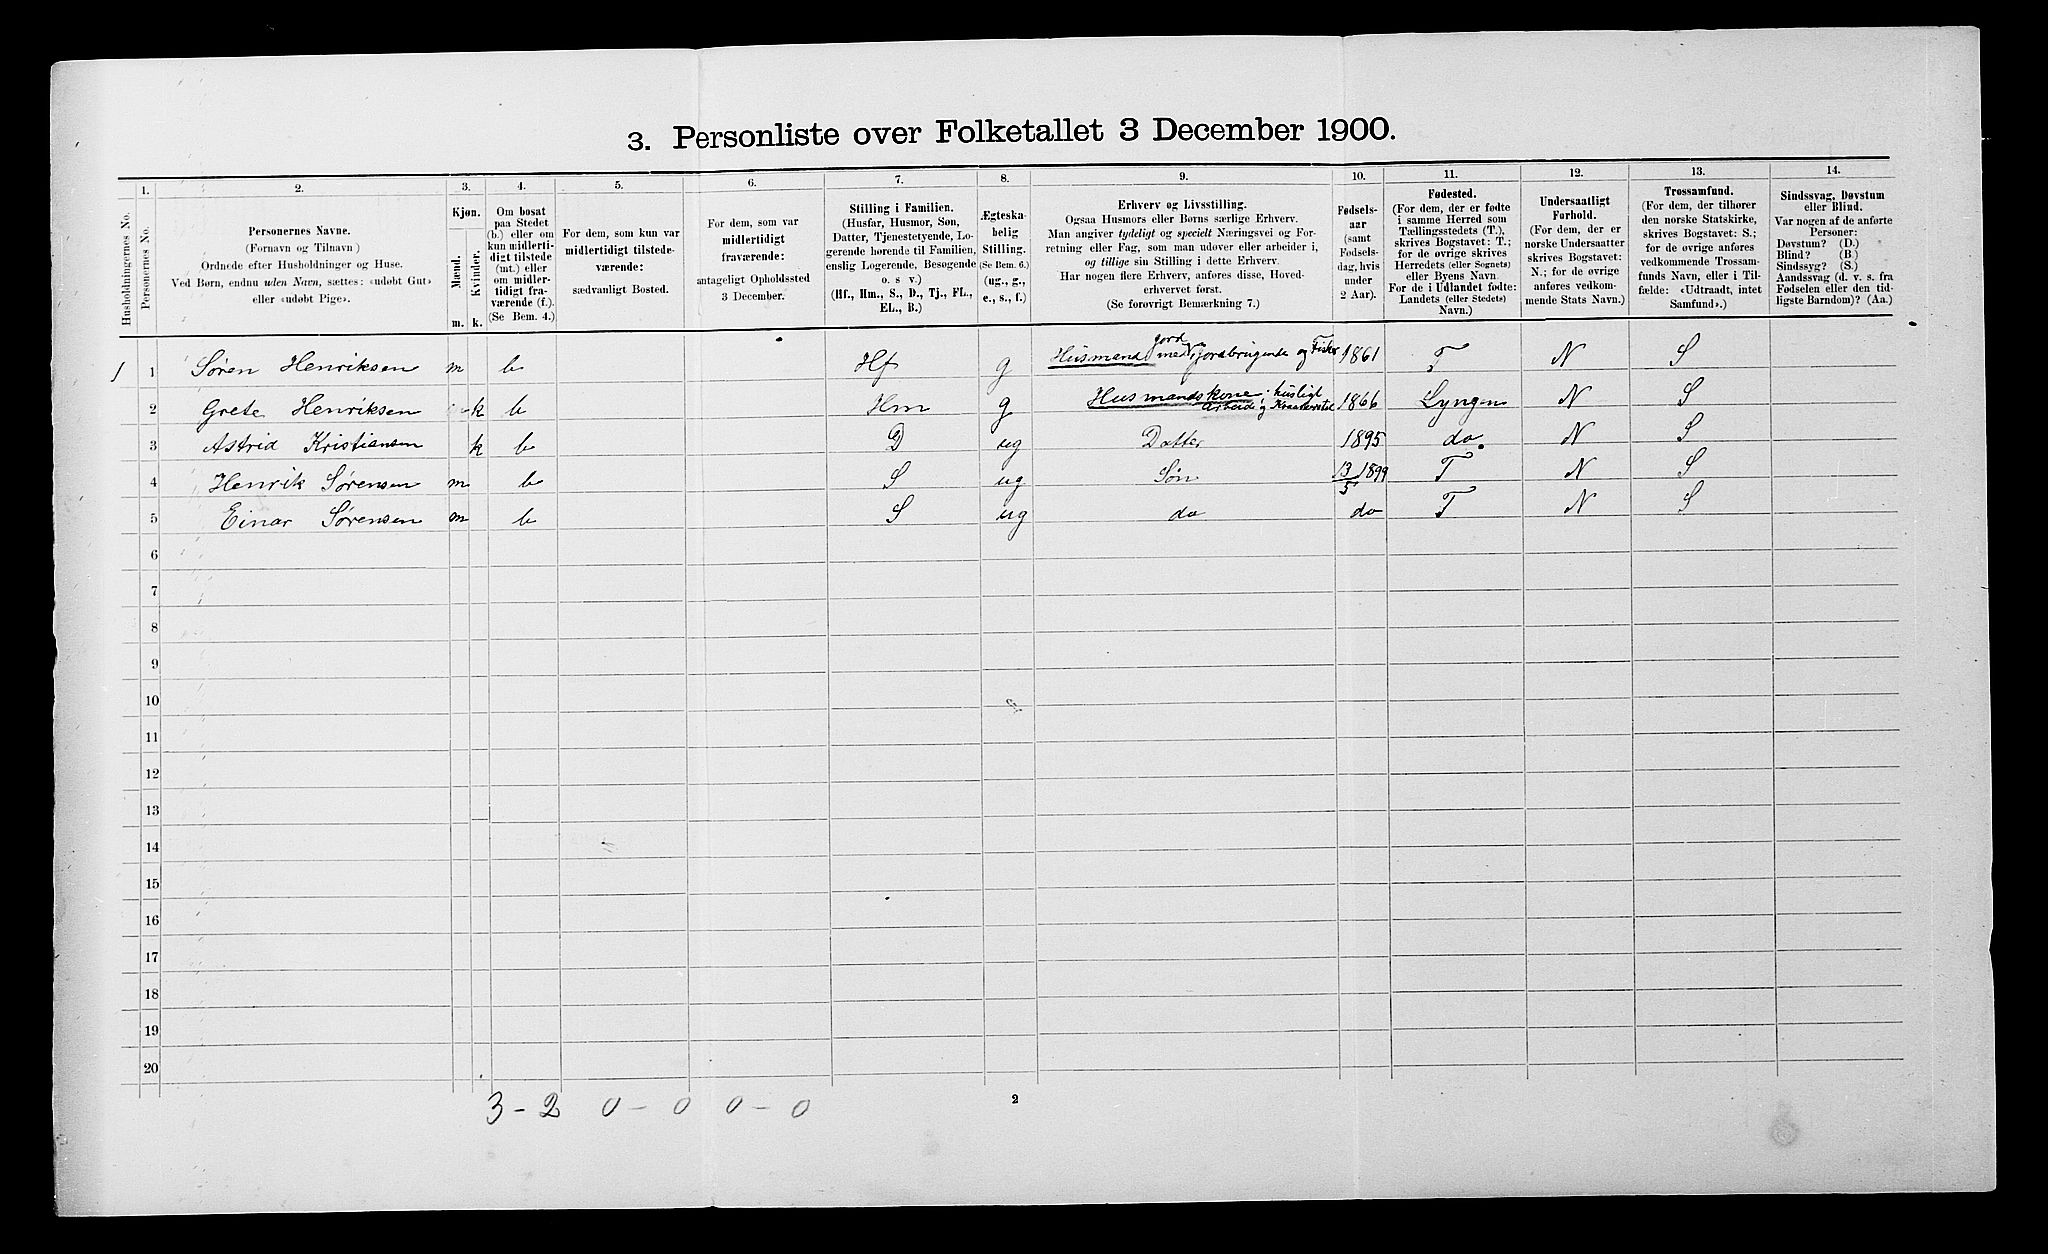 3. Personliste over Folketallet 3 December 1900.
Husholdningernes No.
1.
Personernes No.
2.
Personernes Navne.
(Fornavn og Tilnavn)
Ordnede efter Husholdninger og Huse.
Ved Børn, endnu uden Navn, sættes: «udøbt Gut»
eller «udøbt Pige».
3.
Kjøn.
Mænd.
Kvinder.
m. k.
4.
Om bosat
paa Stedet
(b.) eller om
kun midlerti-
digt tilstede
(mt.) eller
om midler-
tidigt fra-
værende (f.).
(Se Bem. 4.)
5.
For dem, som kun var
midlertidigt tilstede-
værende:
sædvanligt Bosted.
6.
For dem, som var
midlertidigt
fraværende:
antageligt Opholdssted
3 December.
7.
Stilling i Familien.
(Husfar, Husmor, Søn,
Datter, Tjenestetyende, Lo-
gerende hørende til Familien,
enslig Logerende, Besøgende
o. s v.)
(Hf., Hm., S., D., Tj., FL.,
EL., B.)
8.
Ægteska-
belig
Stilling.
(Se Bem. 6.)
(ug., g.,
e., s., f.)
9.
Erhverv og Livsstilling.
Ogsaa Husmors eller Børns særlige Erhverv.
Man angiver tydeligt og specielt Næringsvei og For-
retning eller Fag, som man udøver eller arbeider i,
og tillige sin Stilling i dette Erhverv.
Har nogen flere Erhverv, anføres disse, Hoved-
erhvervet først.
(Se forøvrigt Bemærkning 7.)
10.
Fødsels-
aar
(samt
Fødsels-
dag, hvis
under
2 Aar).
11.
Fødested.
(For dem, der er fødte
i samme Herred som
Tællingsstedets (T.),
skrives Bogstavet: T.;
for de øvrige skrives
Herredets (eller Sognets)
eller Byens Navn.
For de i Udlandet fødte:
Landets (eller Stedets)
Navn.)
12.
Undersaatligt
Forhold.
(For dem, der er
norske Undersaatter
skrives Bogstavet:
N.; for de øvrige
anføres vedkom-
mende Stats Navn.)
13.
Trossamfund.
(For dem, der tilhører
den norske Statskirke,
skrives Bogstavet: S.;
for de øvrige anføres
vedkommende Trossam-
funds Navn, eller i Til-
fælde: «Udtraadt, intet
Samfund».)
14.
Sindssvag, Døvstum
eller Blind.
Var nogen af de anførte
Personer:
Døvstum? (D.)
Blind? (B.)
Sindssyg? (S.)
Aandssvag (d. v. s. fra
Fødselen eller den tid-
ligste Barndom)? (Aa.)
1 1 Søren Henriksen m b Hf g Husmand med jord, jordbrugende og Fisker 1861 T N S
2 Grete Henriksen k b Hm g Husmandskone: husligt Arbeide og Kreaturstel 1866 Lyngen N S
3 Astrid Kristiansen k b D ug Datter 1895 do. N S
4 Henrik Sørensen m b S ug Søn 13/5 1899 T N S
5 Einar Sørensen m b S ug do do T N S
6
7
8
9
10
11
12
13
14
15
16
17
18
19
20
3 - 2 0 - 0 0 - 0
2